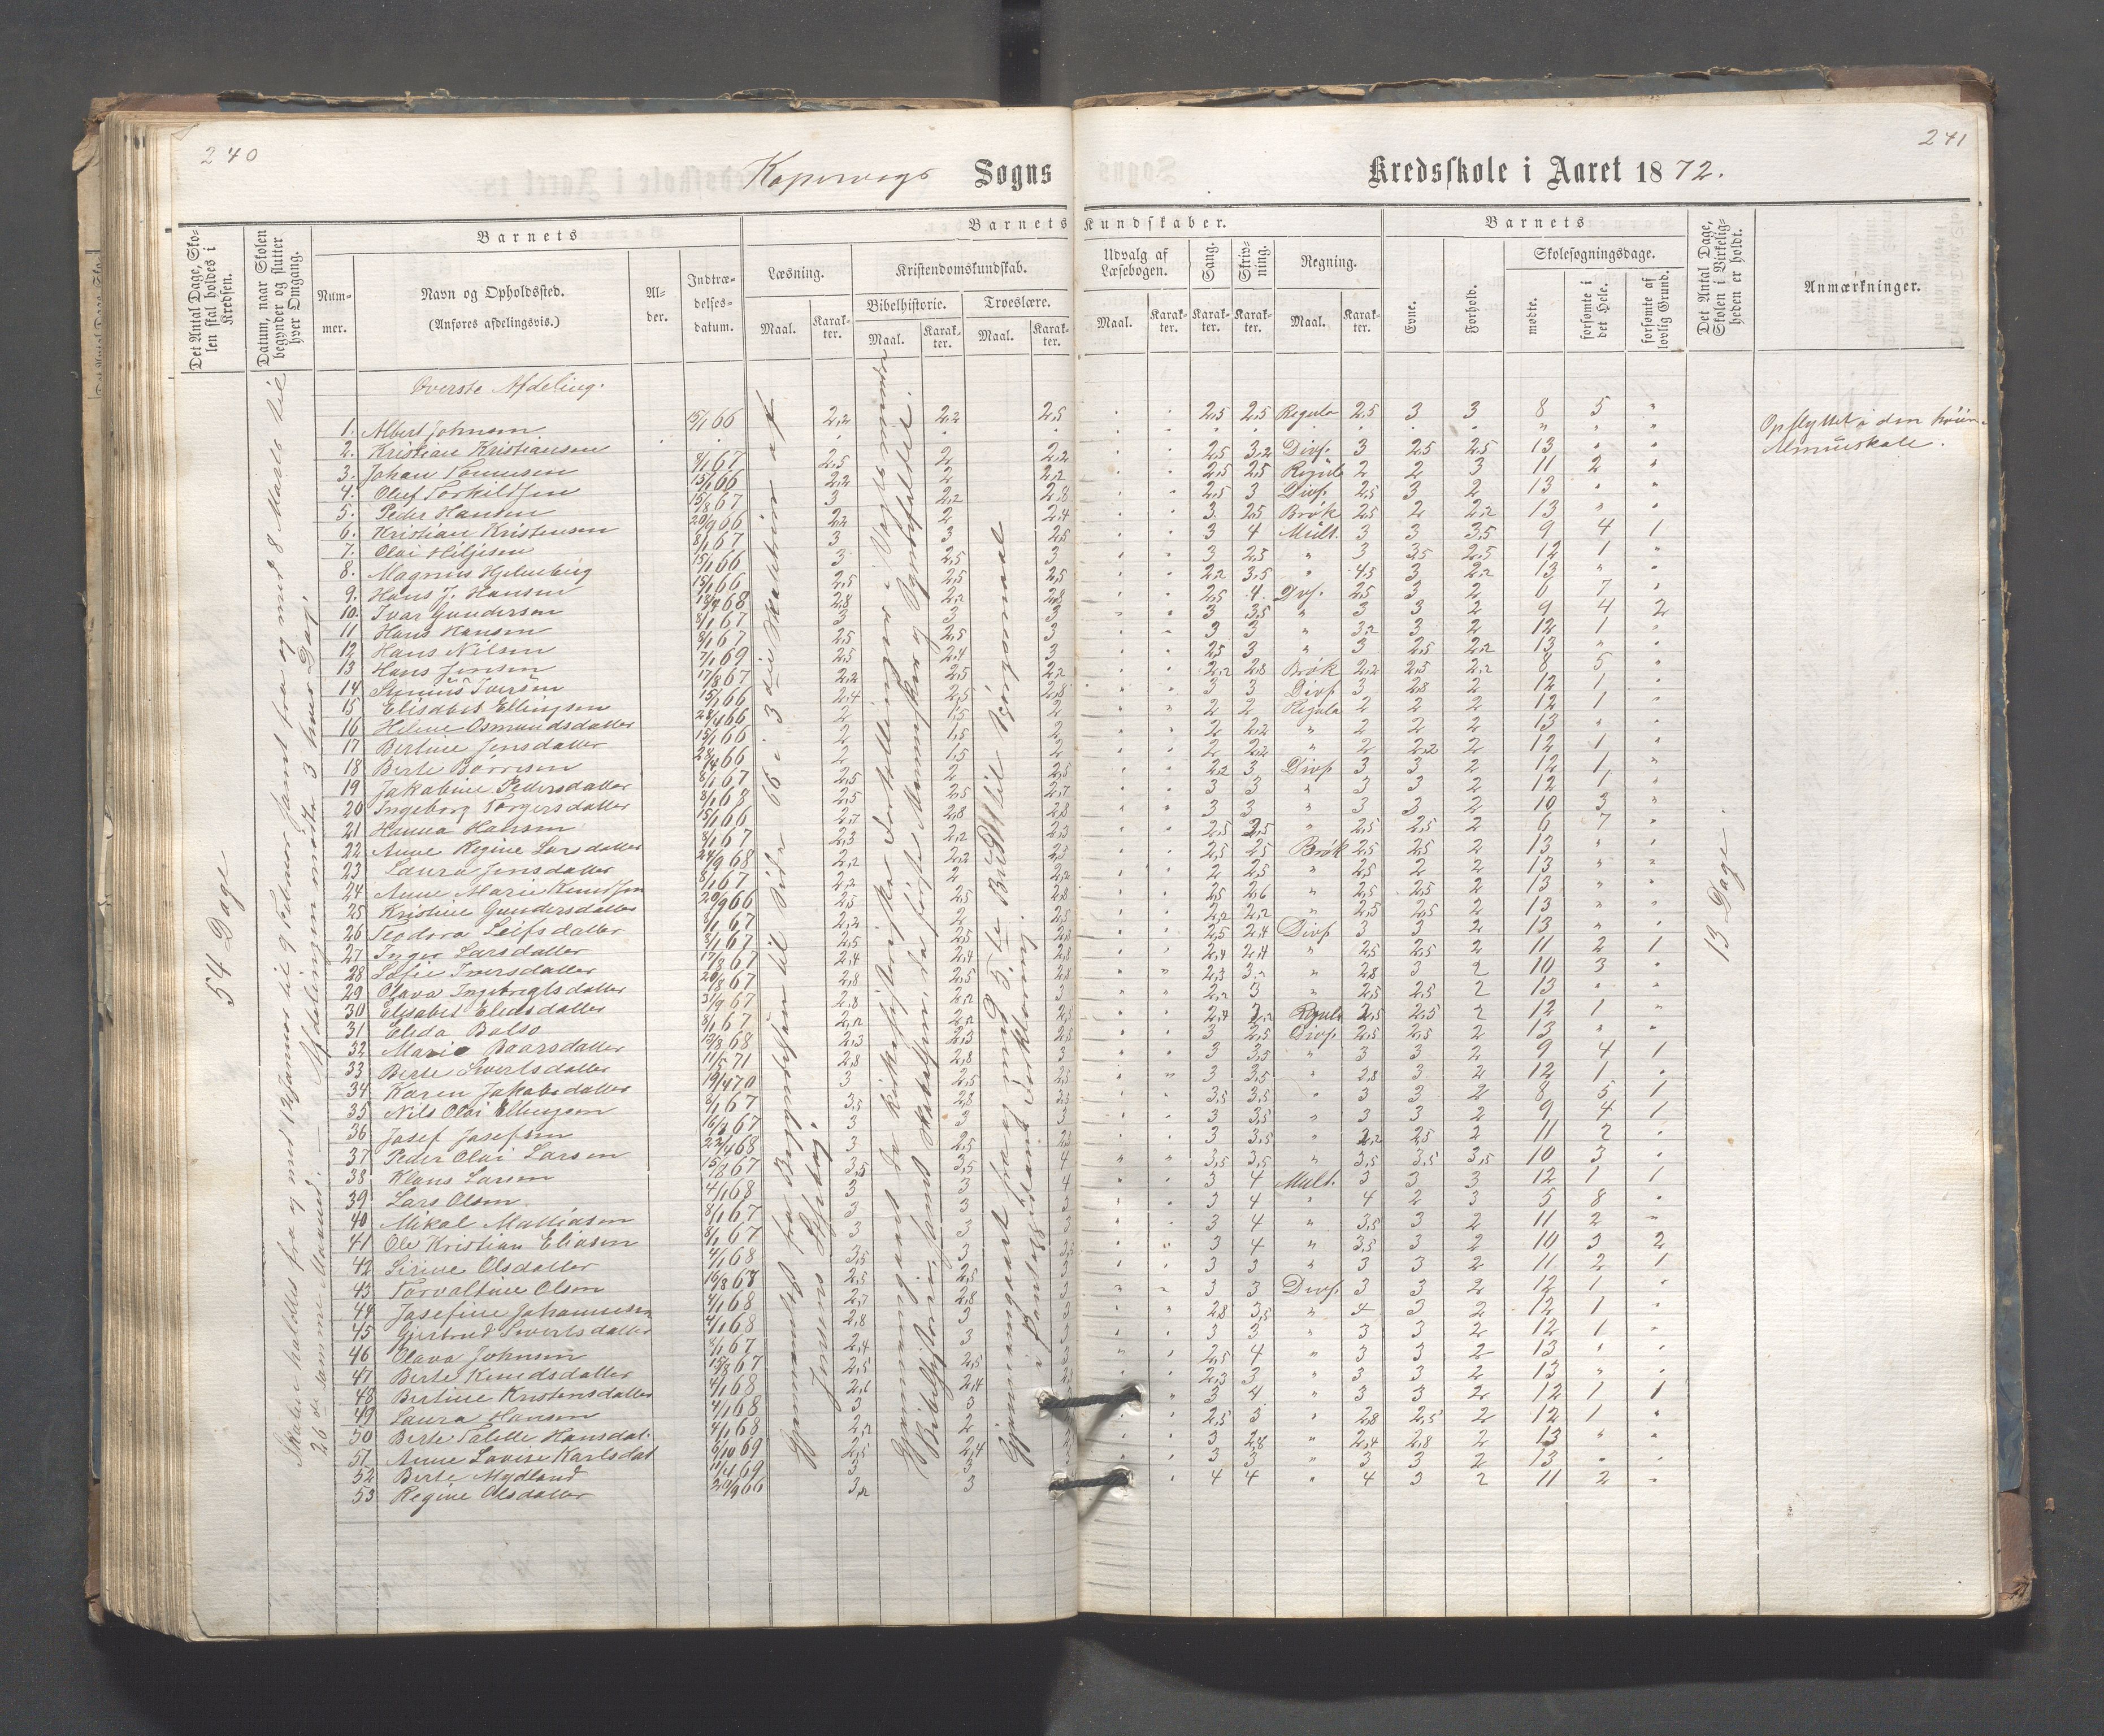 240
241
Kopervigs Sogns
Kredsskole i Aaret 1872.
Det Antal Dage, Skolen skal holdes i Kredsen.
Datum, naar Skolen begynder og slutter hver Omgang.
Barnets
Barnets Kundskaber.
Barnets
Nummer.
Navn og Opholdssted.
(Anføres afdelingsvis.)
Alder.
Indtrædelsesdatum.
Læsning.
Kristendomskundskab.
Bibelhistorie.
Troeslære.
Maal.
Karakter.
Maal.
Karakter.
Maal.
Karakter.
Udvalg af Læsebogen.
Maal.
Karakter.
Sang.
Karakter.
Skrivning.
Karakter.
Regning.
Maal.
Karakter.
Evne.
Forhold.
Skolesøgningsdage.
mødte.
forsømte i det Hele.
forsømte af lovlig Grund.
Det Antal Dage, Skolen i Virkeligheden er holdt.
Anmærkninger.
54 Dage
13 Dage.
Øverste Afdeling.
1. Albert Johnsen 15/1 66 2,2 2,2 2,5 2,5 2,5 Regula 2,5 3 3 8 5
Opflyttet i den høiere Almueskole.
2. Kristian Kristiansen
3. Johan 8/1 67 2,5 2 2,2 2,5 3,2 Divs. 3 2,5 2,5 13
4. Oluf Torkildsen 15/1 66 2,2 2 2,2 2,5 2,5 Regula 2 2 3 11 2
5. Peder Hansen 15/8 67 3 2,2 2,8 2,5 3 Divs. 2,5 3 2 13
6. Kristian Kristensen 20/9 66 2,2 2 2,4 3 2,5 Brøk 2,5 2 2,2 13
7. Olai 8/1 67 3 3 2,5 3 4 Mult. 3 3 3,5 9 4 1
8. Magnus Hjelmberg 15/1 66 3 2,5 3 3 2,5 3 3,5 2,5 12 1
9. Hans J. Hansen 15/1 66 2,5 2,5 2,5 2,2 3,5 4,5 3 2,2 13
10. Ivar Gundersen 2,8 2,2 2,8 2,5 4 Divs. 2,5 3 2 6 7
11 Hans Hansen 8/1 67 3 3 3 3 3,5 3 3 2 9 4 2
12 Hans Nilsen 8/1 67 2,5 2,5 3 3 3 3,2 3 2 12 1
13 Hans Jensen 7/1 69 2,5 2,4 3 2,5 3 3 2,5 2,2 13
14 17/8 67 2,2 2,5 2,2 2,2 2,8 Brøk 2,2 2,5 2,2 8 5
15 Elisabet Ellingsen 15/1 66 2,4 2,5 2,8 3 3 Divs 3 2,8 2 12 1
16 Helene Osmundsdatter 2 1,5 2 2 2 Regula 2 2 2 12 1
17 Bertine Jensdatter 15/1 66 2 1,5 2 2 2,2 2 2 2 13
18 Berte Børresen 2 1,5 2 2 2,2 2 2,2 2 12 1
19 Jakobine Pedersdatter 8/1 67 2,5 2 2,5 2,2 3 Divs 3 3 2 12 1
20 Ingeborg Torgersdatter 8/1 63 2,5 2,5 2,7 3 3 3 3 2 12 1
21 Hanna Hansen 15/1 66 2,7 2,8 2,8 3 3 3 3 2 10 3
22 Anne Regine Larsdatter 8/1 67 2,3 2,2 2,3 2,5 2,5 2,5 2,5 2 6 7
23 Laura Jensdatter 24/9 68 2,2 2,2 2,5 2,5 2,5 Brøk 2,5 2,5 2 13
24 Anne Marie Knudsen 8/1 67 2,2 2 2,2 2 2,5 2,5 2 2 13
25 Kristine Gundersdatter 20/9 66 2,5 2,5 2,8 2,5 2,6 2,5 2,5 2 13
26 Teodora Leifsdatter 8/1 67 2,2 2 2,5 2,2 2,2 2,5 2,5 2 13
27 Inger Larsdatter 8/1 67 2,5 2,5 2,8 2,5 2,4 Divs 3 3 2 13
28 Sofie Iversdatter 17/8 67 2,4 2,4 2,8 2,4 2,4 2,5 2,5 2 11 2 1
29 Olava Ingebregtsdatter 20/8 67 2,8 2,5 2,8 2,3 2,8 3 2 10 3
30 Elisabet Eliasdatter 3/9 67 2,8 2,2 3 2,2 3 2,5 2,5 2 13
31 Elida Bolso 8/1 67 2,2 2,2 2,5 2,4 Regula 2,5 2,5 2 12 1
32 Marie Baarsdatter 13/8 68 2,3 2,3 2,5 3 2,5 Divs. 2,5 2,5 2 13
33 Berte Sivertsdatter 11/5 71 2,8 2,8 3 3 3,5 3 3 2 9 4 1
34 Karen Jakobsdatter 19/4 70 3 2,5 2,5 3 3,5 2,8 3 2 12 1
35 Nils Olai Ellingsen 8/1 67 3,5 2,8 3,5 3,5 3,5 3 3 2 8 5 1
36 Josef Josefsen 16/8 67 3 3 3 3,5 3 3 2 9 4 1
37 Peder Olai Larsen 22/4 68 3 2,5 2,5 3 3,5 2,2 2,5 2 11 2
38 Klaus Larsen 15/8 67 3,5 3,5 4 3,5 3,5 3,5 3,5 3,5 10 3
39 Lars Olsen 4/1 68 3 3 4 3 4 Mult. 3 3 3 12 1 1
40 Mikal Mathiasen 8/1 67 3 3 3 3 4 4 2 3 5 8
41 Ole Kristian Eliasen 8/1 67 3 3 3 4 3,5 3 2 11 2
42 Serine Olsdatter 4/1 68 3,5 3 3,5 3 4 3,5 3 2 10 3 2
43 Torvaldine Olsen 16/8 67 2,5 2,5 3 3 3 3 3 2 11 2 1
44 Josefine Johannesen 4/1 68 2,7 2,8 3 3 3 Divs. 3 3 2 12 1
45 Gjertrud Sivertsdatter 4/1 68 2,8 3 3 2,8 3,5 4 3 2 12 1
46 Olava Johnsen 8/1 67 2,4 3 3 3 3 3 3 2 12 1
47 Berte Knudsdatter 15/8 67 2,5 2,5 3 2,5 4 3 3 2 13
48 Bertine Kristensdatter 4/1 68 2,6 2,4 2,3 3 3 3 2 13
49 Laura Hansen 4/1 68 3 3 3 4 3 3 2 12 1 1
50 Berte Talette Hansdat. 4/1 68 2,2 2 2,5 3 2,8 2,5 2 12 1
51 Anne Lovise Karlsdat 6/10 69 2,5 2,4 3 2,8 2,4 2,8 2 13
52 Berte Mydland 11/4 69 3 3 3 3 3 3 2 13
53 Regine Olsdatter 20/9 66 3,2 3 4 4 4 3 2 11 2
Skolen holdtes fra og med 12 Januar til 9 Februar samt fra og med 8 Marts til
26de samme Maaned. — Afdelingen mødte 3 hver Dag.
Gjennemlæst fra Begyndelsen til Side 66 i 3die Skoletrin af
Jensens Læsebog.
Gjennemgaaet de kirkehistoriske Fortællinger i Vogts mindre
Bibelhistorie, samt Skabelsen, de første Mennesker og Syndefaldet.
Gjennemgaaet fra og med 5te Bud til Spørgsmaal
i Pontoppidans Forklaring.